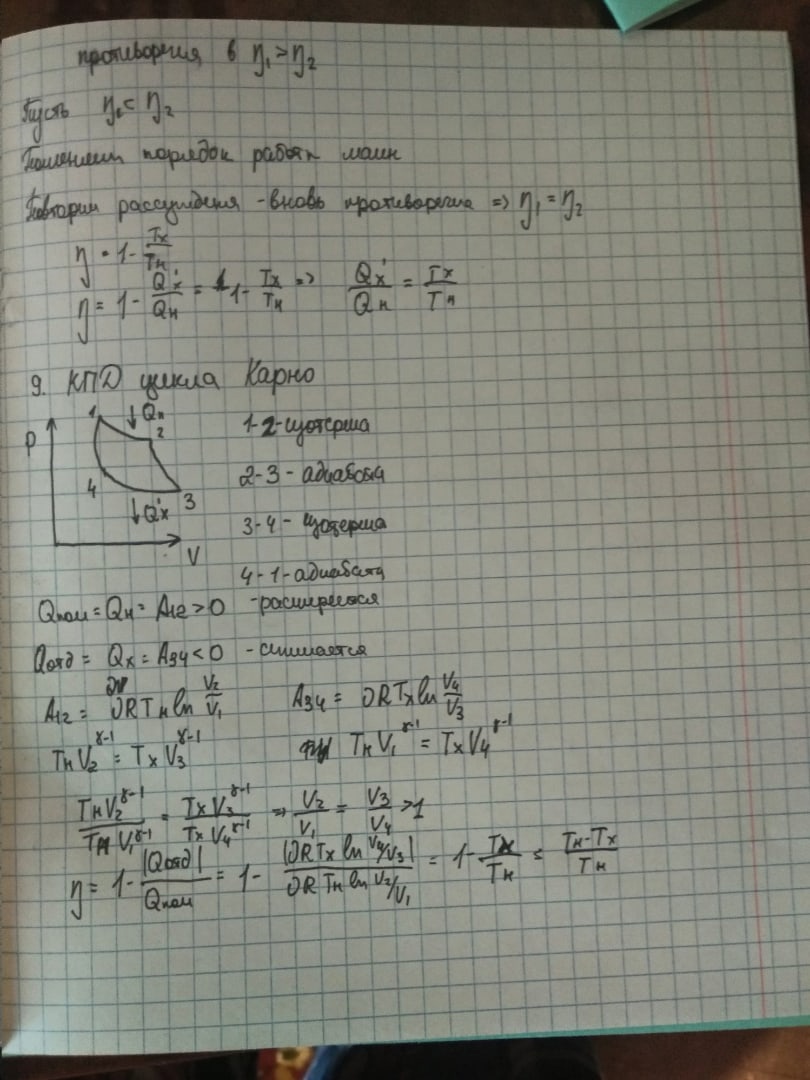 противоречия в η₁ > η₂
Пусть η₁ < η₂
Поменяем порядок работы машин
Повторим рассуждения - вновь противоречие => η₁ = η₂
η = 1 - Tx/Tн
η = 1 - Q'x/Qн = 1 - Tx/Tн => Q'x/Qн = Tx/Tн
9. КПД цикла Карно
1 ↓Qн 2
P
4 3
↓Q'x
V
1-2-изотерма
2-3 - адиабата
3-4 - изотерма
4-1-адиабата
Qпол = Qн = A₁₂ > 0 - расширяется
Qотд = Qx = A₃₄ < 0 - сжимается
A₁₂ = νRTн ln V₂/V₁ A₃₄ = νRTx ln V₄/V₃
TнV₂^(γ-1) = TxV₃^(γ-1) TнV₁^(γ-1) = TxV₄^(γ-1)
TнV₂^(γ-1)/TнV₁^(γ-1) = TxV₃^(γ-1)/TxV₄^(γ-1) => V₂/V₁ = V₃/V₄ > 1
η = 1 - |Qотд|/Qпол = 1 - |νRTx ln V₄/V₃|/νRTн ln V₂/V₁ = 1 - Tx/Tн = Tн-Tx/Tн